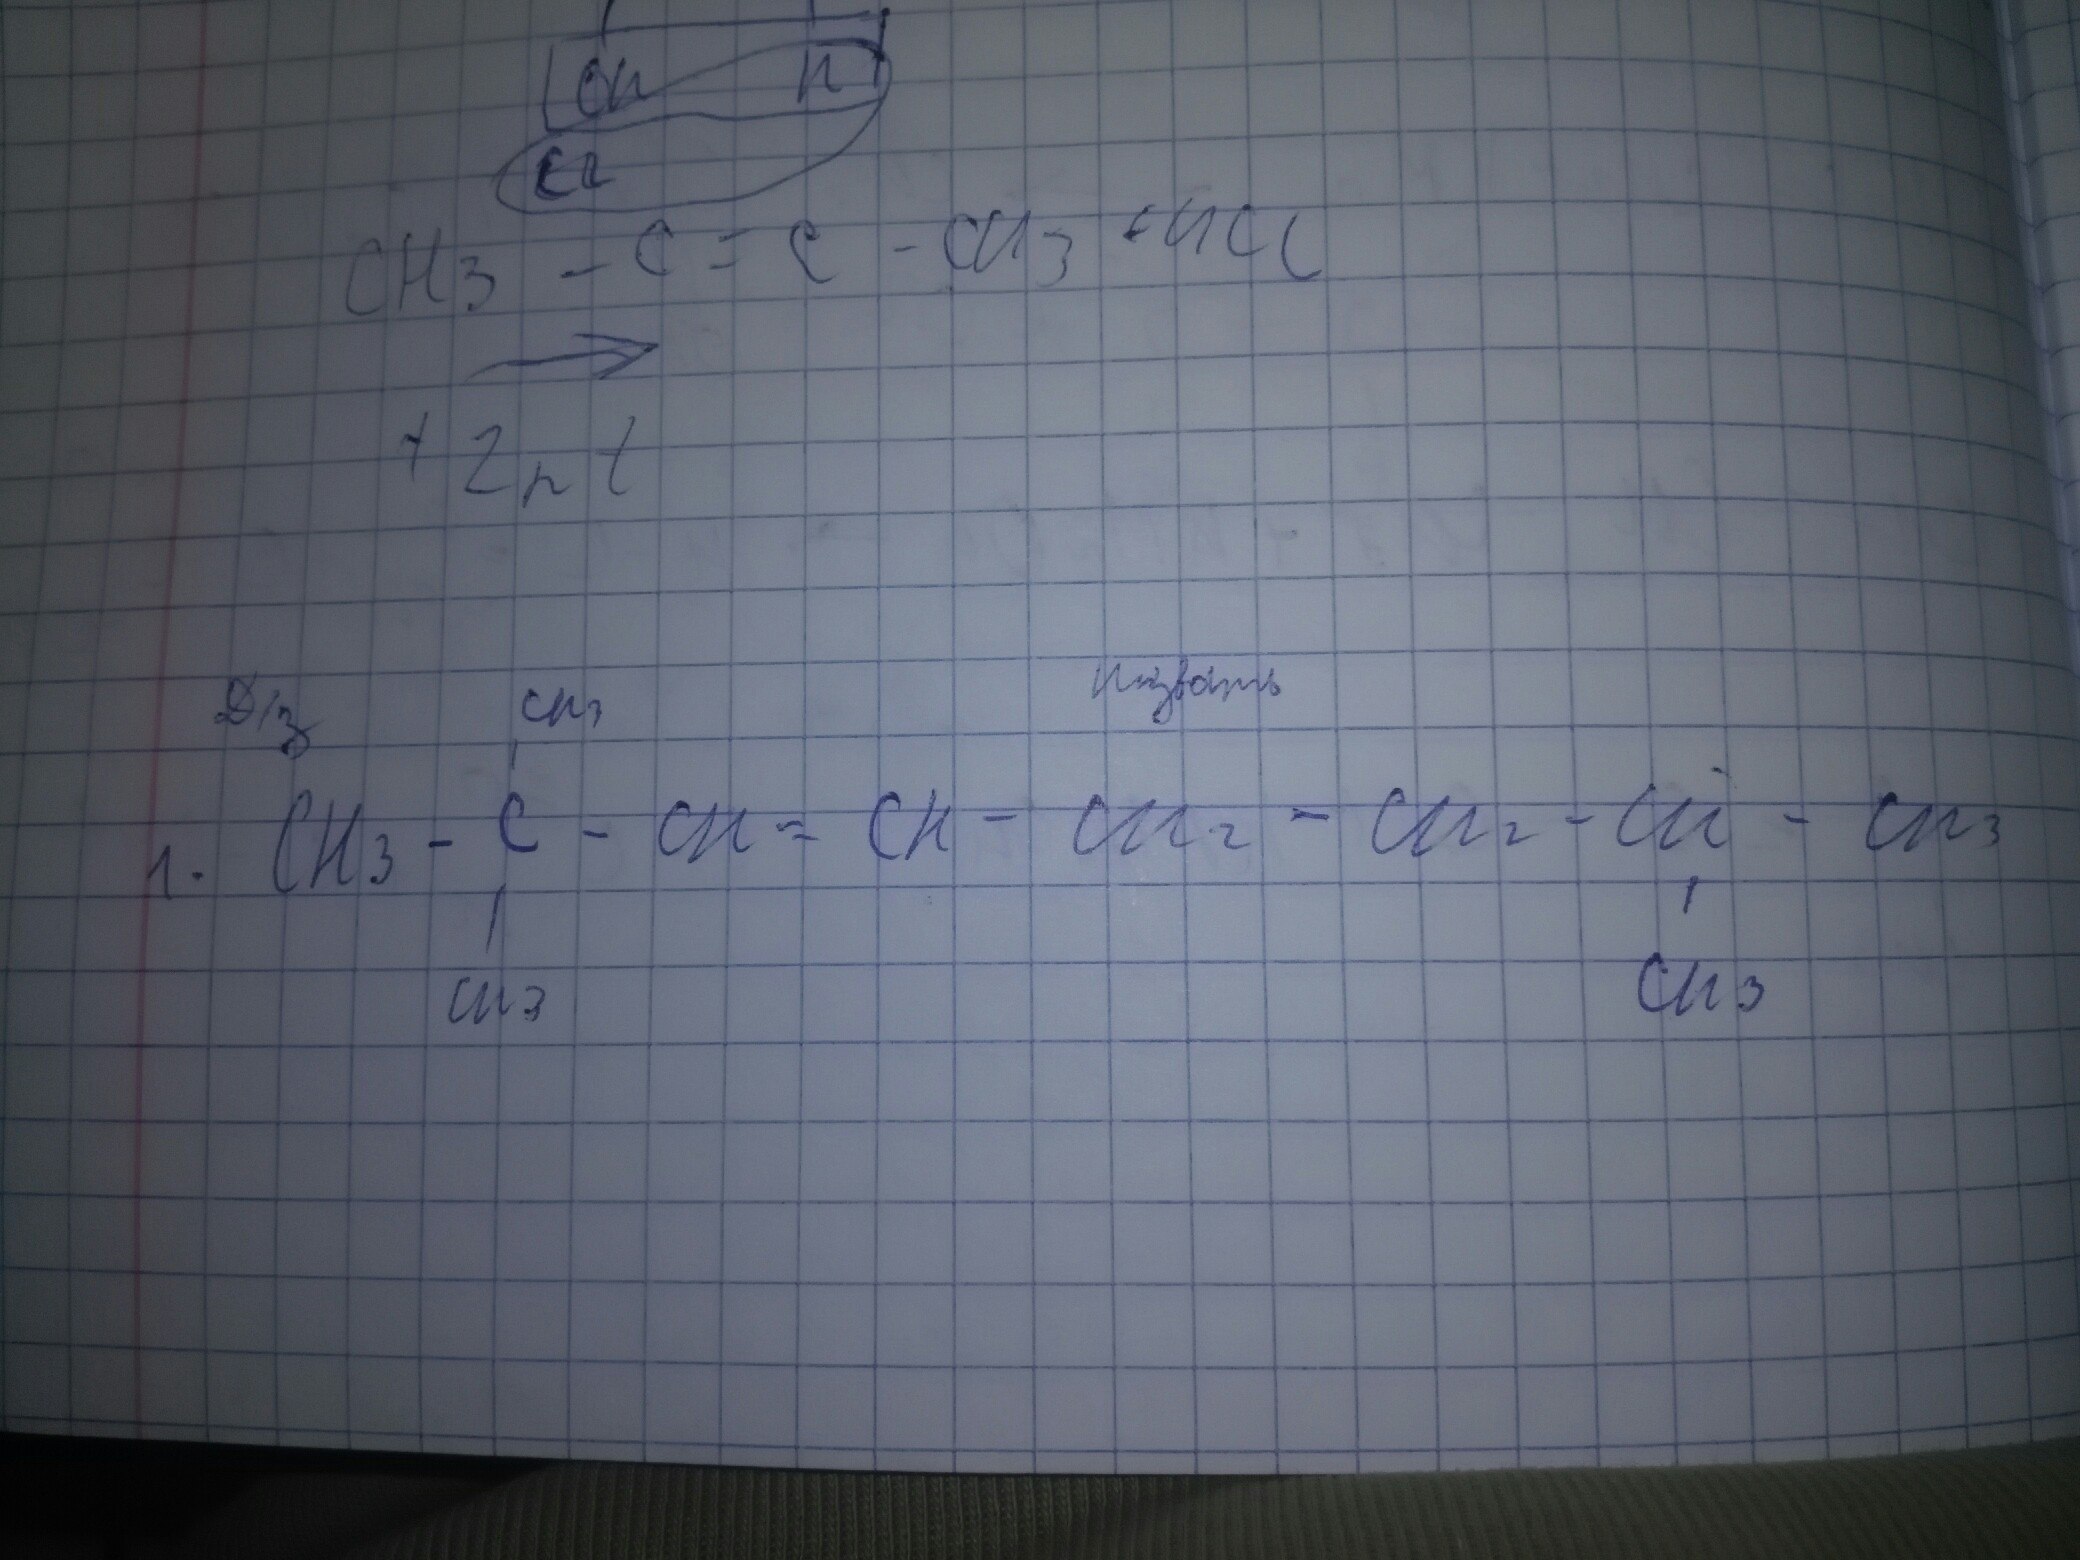 OH H
Cl
CH3 - C = C - CH3 + HCl
→
+ Zn t
Д/з CH3 назвать
1. CH3 - C - CH = CH - CH2 - CH2 - CH - CH3
CH3 CH3